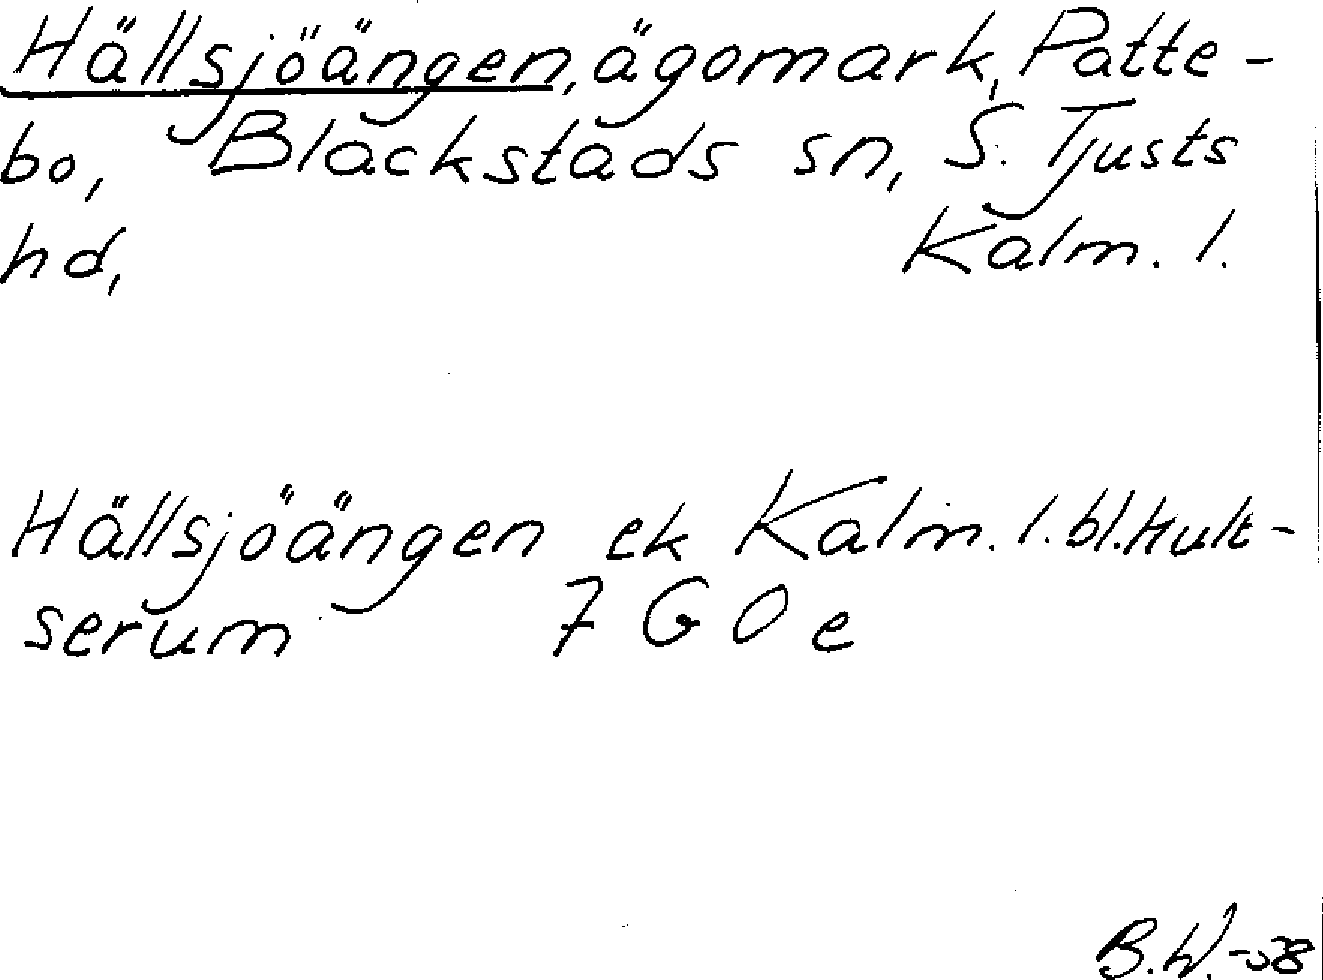 Hällsjöängen, ägomark, Patte-
bo, Blackstads sn, S. Tjusts
hd, Kalm. l.
Hällsjöängen ek Kalm. l. bl. Hult-
serum 7 G O e
B.W.-58